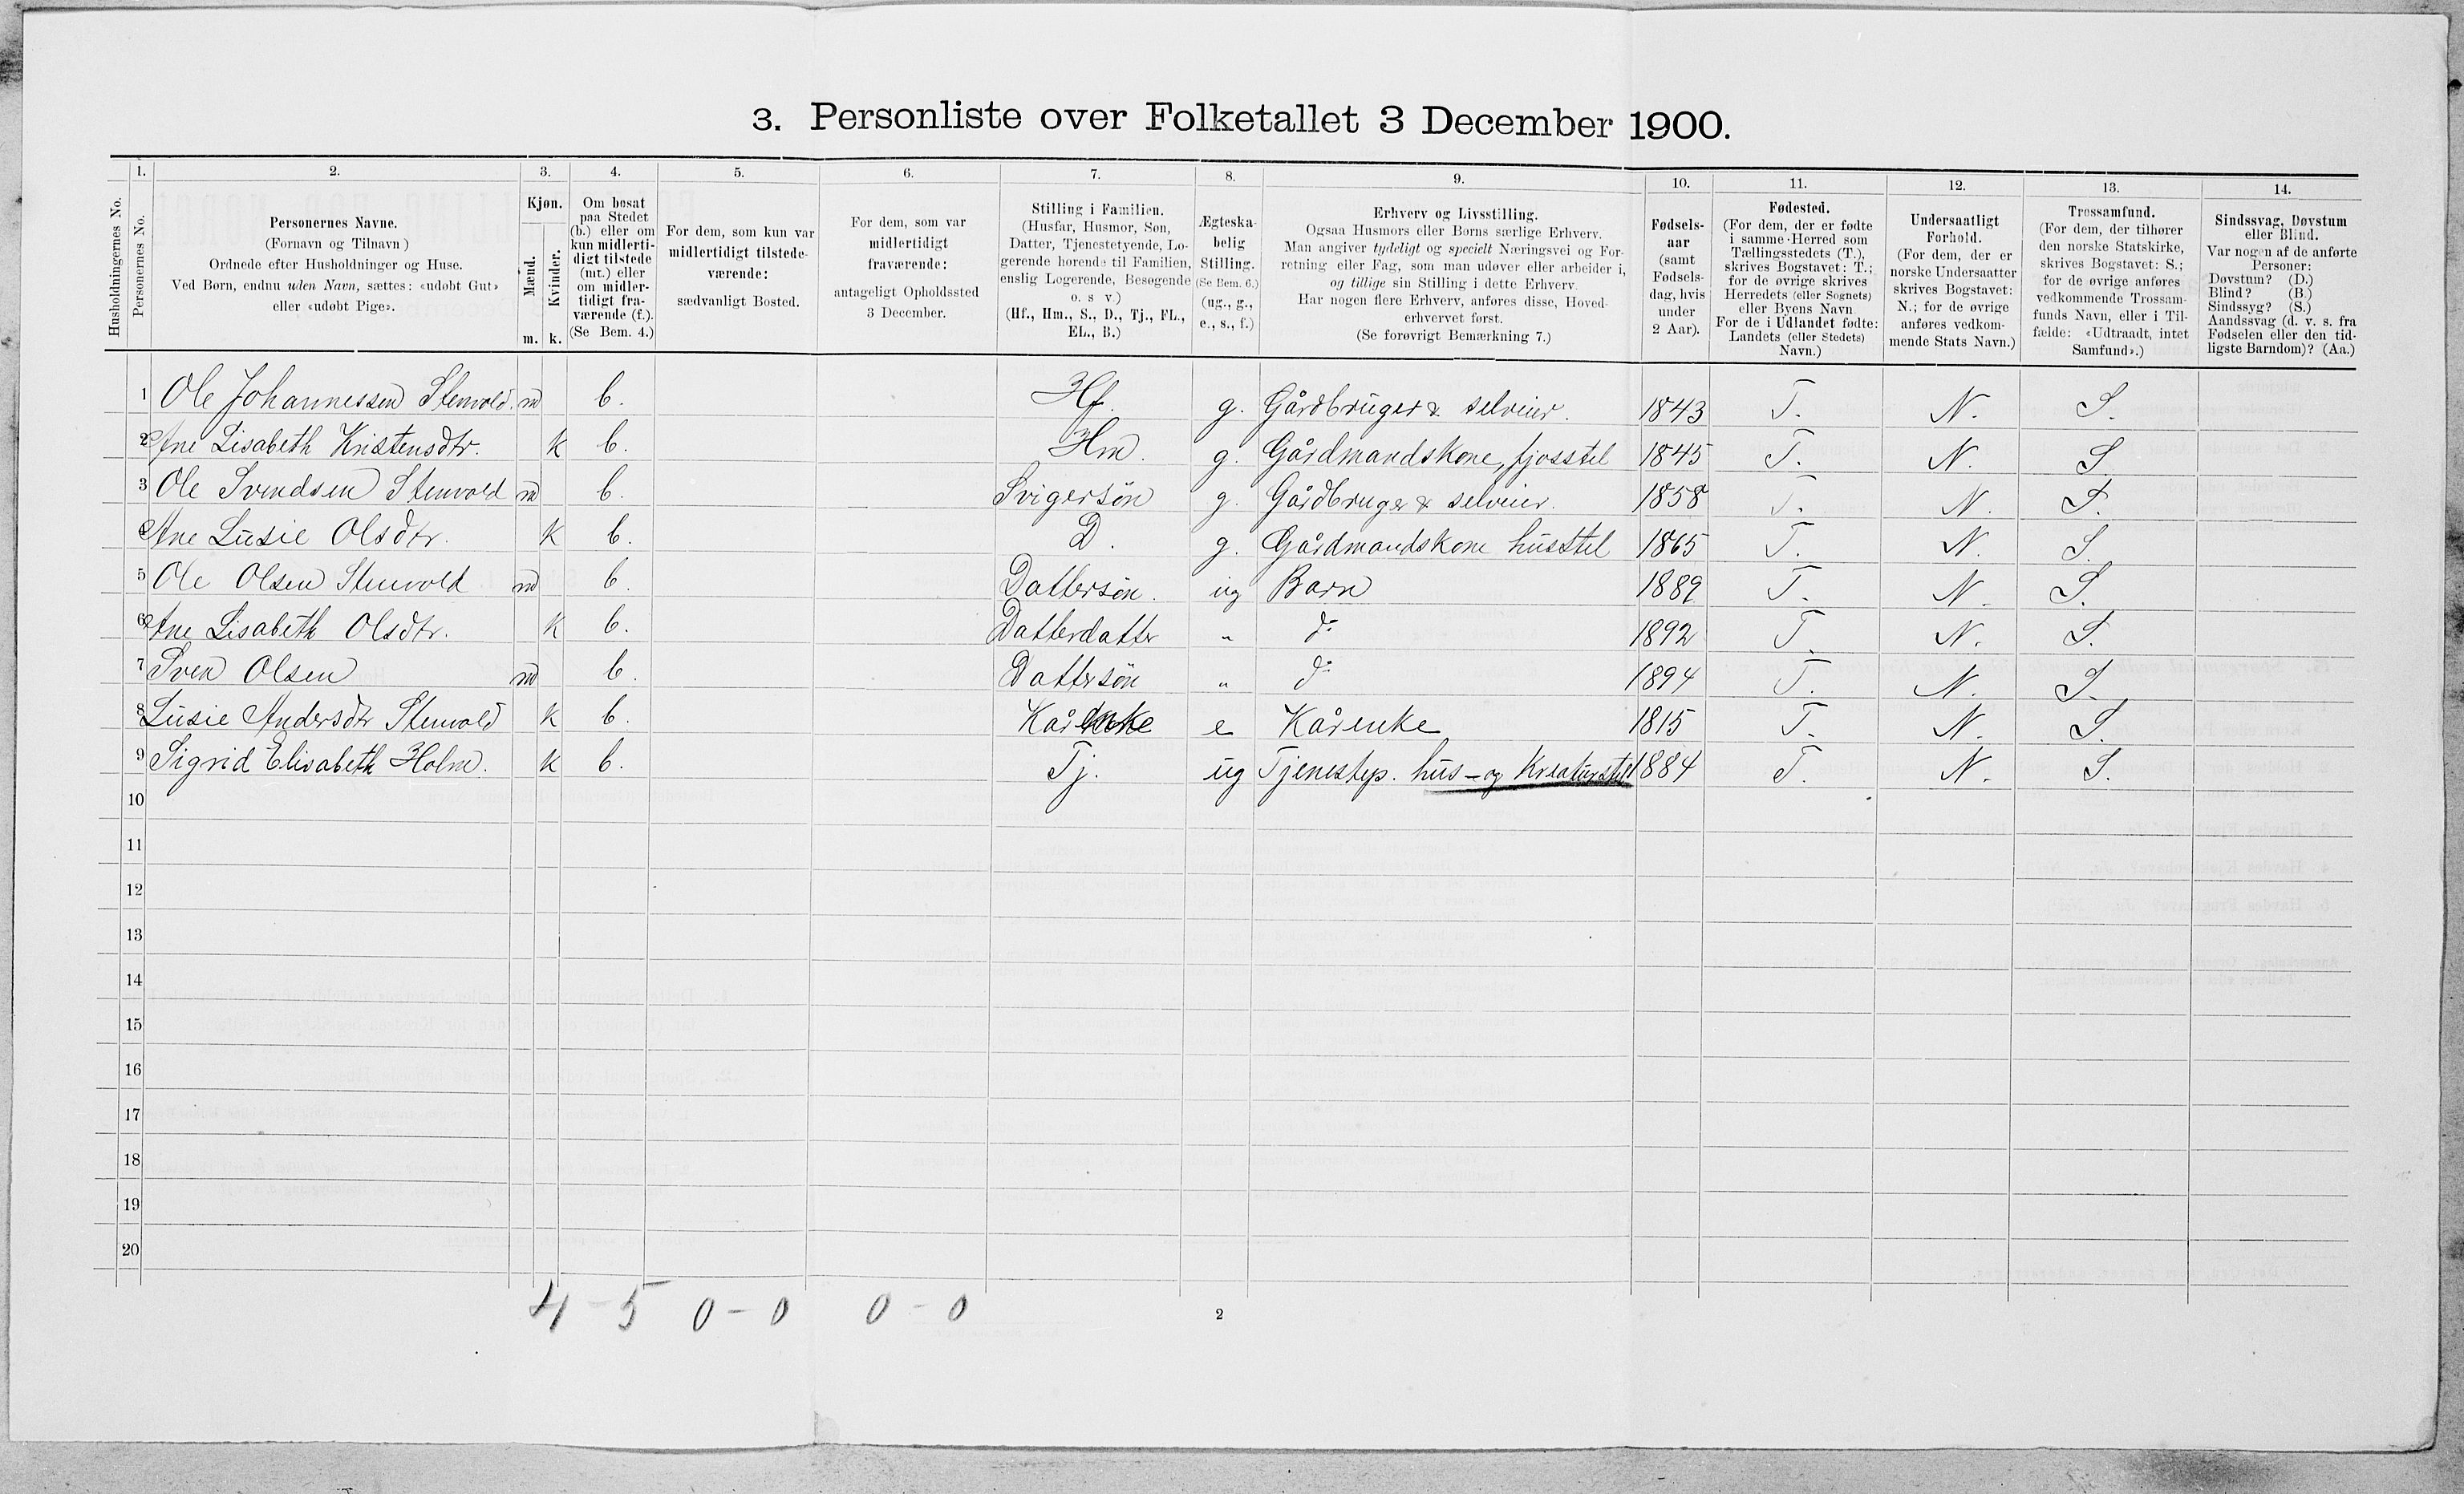 3. Personliste over Folketallet 3 December 1900.
1. 2. 3. 4. 5. 6. 7. 8. 9. 10. 11. 12. 13. 14.
Husholdningernes No.
Personernes No.
Personernes Navne.
(Fornavn og Tilnavn)
Ordnede efter Husholdninger og Huse.
Ved Børn, endnu uden Navn, sættes: «udøbt Gut»
eller «udøbt Pige».
Kjøn.
Mænd.
Kvinder.
m. k.
Om bosat
paa Stedet
(b.) eller om
kun midlerti-
digt tilstede
(mt.) eller
om midler-
tidigt fra-
værende (f.).
(Se Bem. 4.)
For dem, som kun var
midlertidigt tilstede-
værende:
sædvanligt Bosted.
For dem, som var
midlertidigt
fraværende:
antageligt Opholdssted
3 December.
Stilling i Familien.
(Husfar, Husmor, Søn,
Datter, Tjenestetyende, Lo-
gerende hørende til Familien,
enslig Logerende, Besøgende
o. s v.)
(Hf., Hm., S., D., Tj., FL.,
EL., B.)
Ægteska-
belig
Stilling.
(Se Bem. 6.)
(ug., g.,
e., s., f.)
Erhverv og Livsstilling.
Ogsaa Husmors eller Børns særlige Erhverv.
Man angiver tydeligt og specielt Næringsvei og For-
retning eller Fag, som man udøver eller arbeider i,
og tillige sin Stilling i dette Erhverv.
Har nogen flere Erhverv, anføres disse, Hoved-
erhvervet først.
(Se forøvrigt Bemærkning 7.)
Fødsels-
aar
(samt
Fødsels-
dag, hvis
under
2 Aar).
Fødested.
(For dem, der er fødte
i samme Herred som
Tællingsstedets (T.),
skrives Bogstavet: T.;
for de øvrige skrives
Herredets (eller Sognets)
eller Byens Navn
For de i Udlandet fødte:
Landets (eller Stedets)
Navn.)
Undersaatligt
Forhold.
(For dem, der er
norske Undersaatter
skrives Bogstavet:
N.; for de øvrige
anføres vedkom-
mende Stats Navn.)
Trossamfund.
(For dem, der tilhører
den norske Statskirke,
skrives Bogstavet: S.;
for de øvrige anføres
vedkommende Trossam-
funds Navn, eller i Til-
fælde: «Udtraadt, intet
Samfund».)
Sindssvag, Døvstum
eller Blind.
Var nogen af de anførte
Personer:
Døvstum? (D.)
Blind? (B.)
Sindssyg? (S.)
Aandssvag (d. v. s. fra
Fødselen eller den tid-
ligste Barndom)? (Aa.)
1 Ole Johannessen Stenvold. m b. Hf. g. Gårdbruger & selveier. 1843 T. N. S.
2 Ane Lisabeth Kristensdtr. k b. Hm. g. Gårdmandskone, fjosstel 1845 T. N. S
3 Ole Svendsen Stenvold m b. Svigersön g. Gårdbruger & selveier. 1858 T. N. S.
4 Ane Lusie Olsdtr. k b. D. g. Gårdmandskone husstel 1865 T. N. S.
5 Ole Olsen Stenvold m b. Dattersön. ug Barn 1889 T. N. S.
6 Ane Lisabeth Olsdtr. k b. Datterdatter " do 1892 T. N. S.
7 Sven Olsen m b. Dattersön " do 1894 T. N. S.
8 Lusie Andersdtr Stenvold k b. Kårenke e Kårenke 1815 T. N. S.
9 Sigrid Elisabeth Holm. k b. Tj. ug Tjenestep. hus- og Kreaturstel 1884 T. N. S.
10
11
12
13
14
15
16
17
18
19
20
4 - 5 0 - 0 0 - 0
2